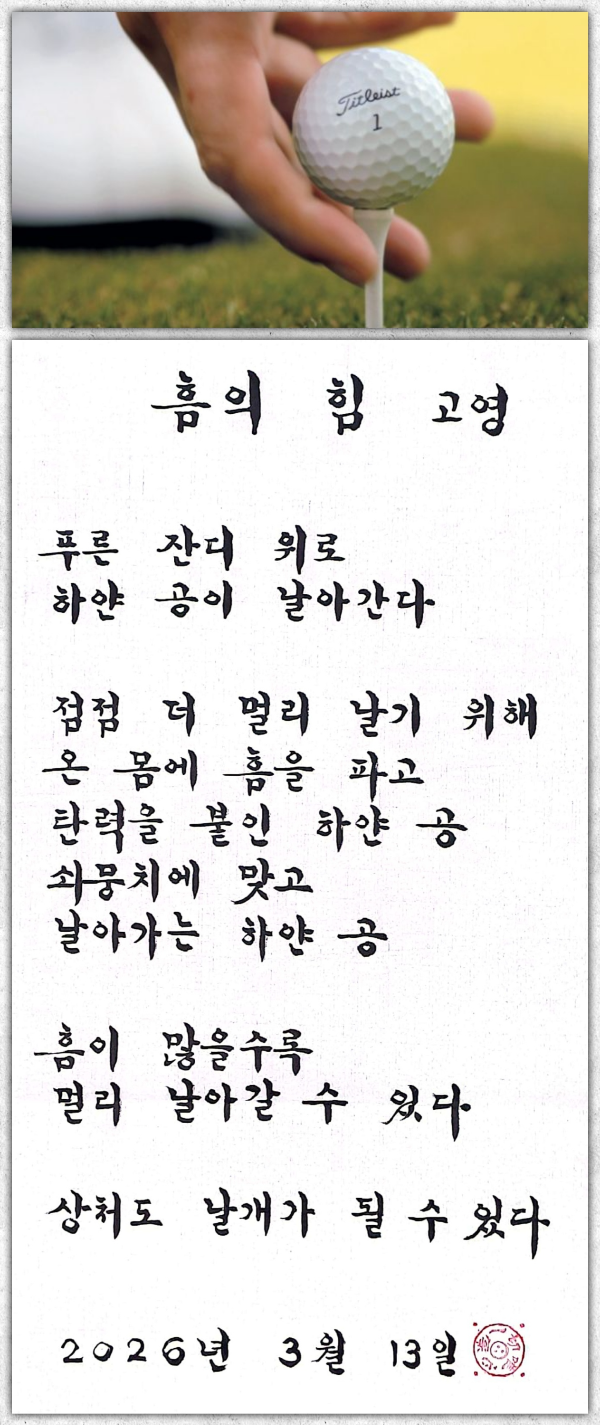 Titleist
1
흠의 힘 고영
푸른 잔디 위로
하얀 공이 날아간다
점점 더 멀리 날기 위해
온 몸에 흠을 파고
탄력을 붙인 하얀 공
쇠뭉치에 맞고
날아가는 하얀 공
흠이 많을수록
멀리 날아갈 수 있다
상처도 날개가 될 수 있다
2026년 3월 13일